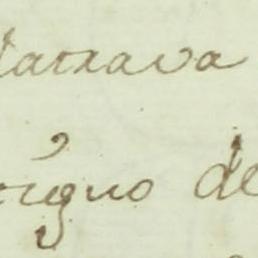 latrava
rigno de